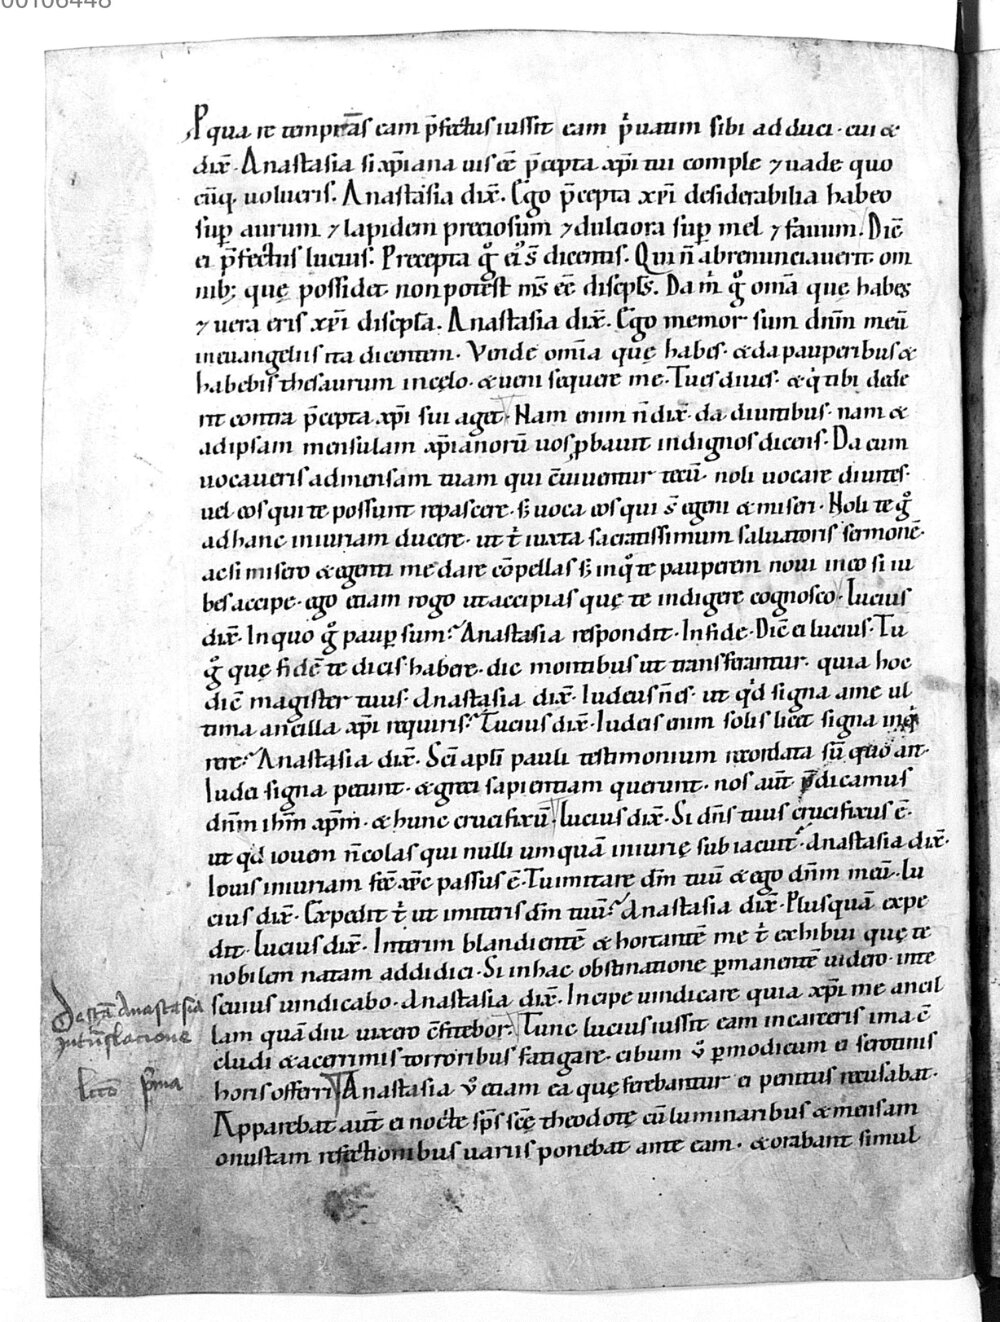 00106448
P qua re temptās eam p̄fectus iussit eam p̓uatim sibi adduci · cui &
dix̄ · Anastasia si xp̄iana uis eē p̄cepta xp̄i tui comple ⁊ uade quo
cūq; uolueris. Anastasia dix̄. Ego p̄cepta xp̄i desiderabilia habeo
sup̲ aurum ⁊ lapidem preciosum ⁊ dulciora sup̲ mel ⁊ fauum. Dic̄
ei p̄fectus lucius. Precepta gͦ ei s̄ dicentis. Qui n̄ abrenunciauerit om
nib; quę possidet · non potest m̄s eē discipl̄s. Da m̓ gͦ omā quę habes
⁊ uera eris xp̄i discipl̄a. Anastasia dix̄. Ego memor sum dnm̄ meū
in euangeliis ita dicentem · Vende omīa quę habes · & da pauperibus &
habebis thesaurum in cęlo · & ueni sequere me · Tu es diues · & q̓ tibi dede
rit contra p̄cepta xp̄i sui aget · Nam enim n̄ dix̄ · da diuitibus · nam &
ad ipsam mensulam xp̄ianorū uos p̲bauit indignos dicens · Da cum
uocaueris ad mensam tuam qui c̄uiuentur tecū · noli uocare diuites ·
uel eos qui te possunt repascere · s; uoca eos qui s̄ egeni & miseri · Noli te gͦ
ad hanc iniuriam ducere · ut t̓ iuxta sacratissimum saluatoris sermonē ·
ac si misero & egenti me dare cōpellas s; in qͦ te pauperem noui in eo si iu
bes accipe · ego etiam rogo ut accipias quę te indigere cognosco · Lucius
dix̄ · In quo gͦ paup̲ sum · Anastasia respondit · In fide · Dic̄ ei lucius · Tu
gͦ quę fidē te dicis habere · dic montibus ut transferantur · quia hoc
dic̄ magister tuus · Anastasia dix̄ · Iudeus n̄ es · ut q̓d signa a me ul
tima ancilla xp̄i requiris · Lucius dix̄ · Iudeis enim solis licet signa inq̓
rere · Anastasia dix̄ · Sc̄i apl̄i pauli testimonium recordata sū quo ait ·
Iudei signa petunt · & greci sapientiam querunt · nos aūt p̄dicamus
dnm̄ ihm̄ xp̄m · & hunc crucifixū · Lucius dix̄ · Si dn̄s tuus crucifixus ē ·
ut q̓d iouem n̄ colas qui nulli umquā iniurię subiacuit · Anastasia dix̄ ·
Iouis iniuriam fec̄ xp̄c passus ē · Tu imitare dm̄ tuū & ego dnm̄ meū · Lu
cius dix̄ · Expedit t̓ ut imiteris dm̄ tuū · Anastasia dix̄ · Plus quā expe
dit · Lucius dix̄ · Interim blandientē & hortantē me t̓ exhibui quę te
nobilem natam addidici · Si in hac obstinatione p̲manentē uidero · in te
seuius uindicabo · Anastasia dix̄ · Incipe uindicare quia xp̄i me ancil
lam quā diu uixero c̄fitebor · Tunc lucius iussit eam in carceris ima c̄
cludi & acerrimis torroribus fatigare · cibum ū p̲modicum ei serotinis
horis offerri · Anastasia ū etiam ea quę ferebantur ei penitus recusabat ·
Apparebat aūt ei nocte sp̄s sc̄ę theodotę cū luminaribus & mensam
onustam refectionibus uariis ponebat ante eam · & orabant simul
De sctā Anastasia
in tn̄slacione
lectō pͥma